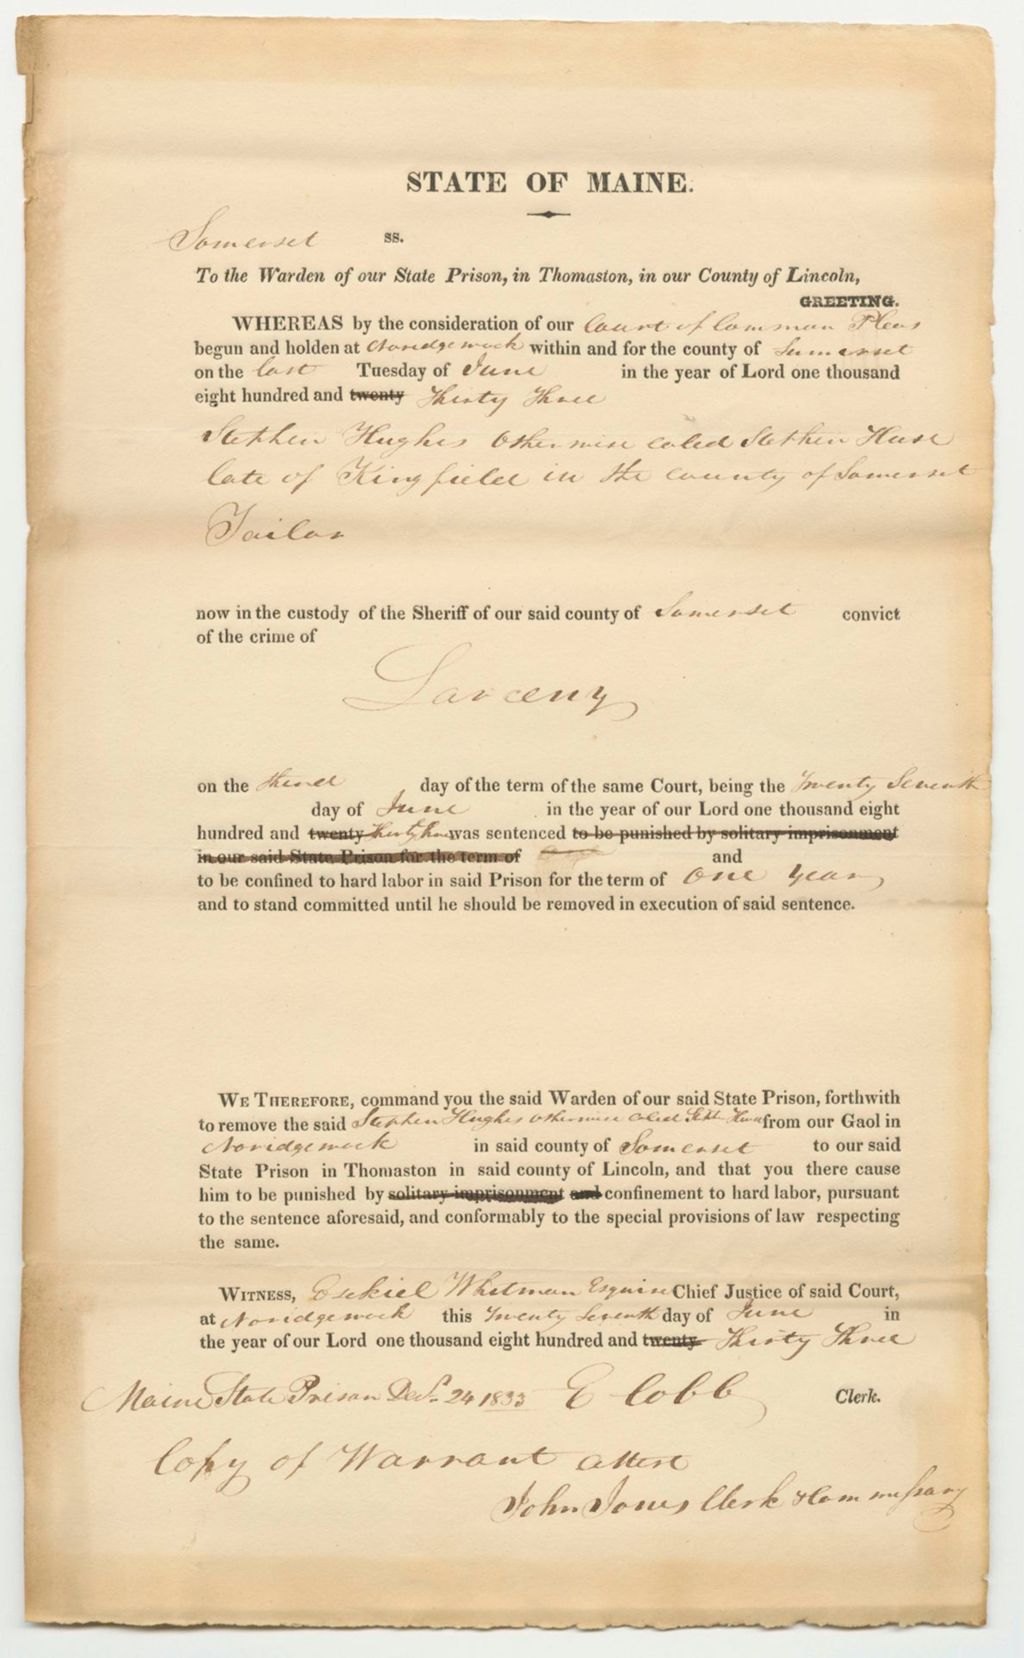 STATE OF MAINE.
Somerset ss.
To the Warden of our State Prison, in Thomaston, in our County of Lincoln,
GREETING.
WHEREAS by the consideration of our Court of Common Pleas
begun and holden at Noridgewock within and for the county of Somerset
on the last Tuesday of June in the year of Lord one thousand
eight hundred and twenty Thirty Three
Stephen Hughes otherwise caled Stephen Huse
late of Kingfield in the county of Somerset
Tailor
now in the custody of the Sheriff of our said county of Somerset convict
of the crime of
Larceny
on the third day of the term of the same Court, being the Twenty Seventh
day of June in the year of our Lord one thousand eight
hundred and twenty Thirty three was sentenced to be punished by solitary imprisonment
in our said State Prison for the term of and
to be confined to hard labor in said Prison for the term of One Year
and to stand committed until he should be removed in execution of said sentence.
WE THEREFORE, command you the said Warden of our said State Prison, forthwith
to remove the said Stephen Hughes otherwise caled Huse from our Gaol in
Noridgewock in said county of Somerset to our said
State Prison in Thomaston in said county of Lincoln, and that you there cause
him to be punished by solitary imprisonment and confinement to hard labor, pursuant
to the sentence aforesaid, and conformably to the special provisions of law respecting
the same.
WITNESS, Ezekiel Whitman Esquire Chief Justice of said Court,
at Noridgewock this Twenty Seventh day of June in
the year of our Lord one thousand eight hundred and twenty Thirty Three
Maine State Prison Dec. 24 1833 E Cobb Clerk.
Copy of Warrant attest
John Jones Clerk & Commissary